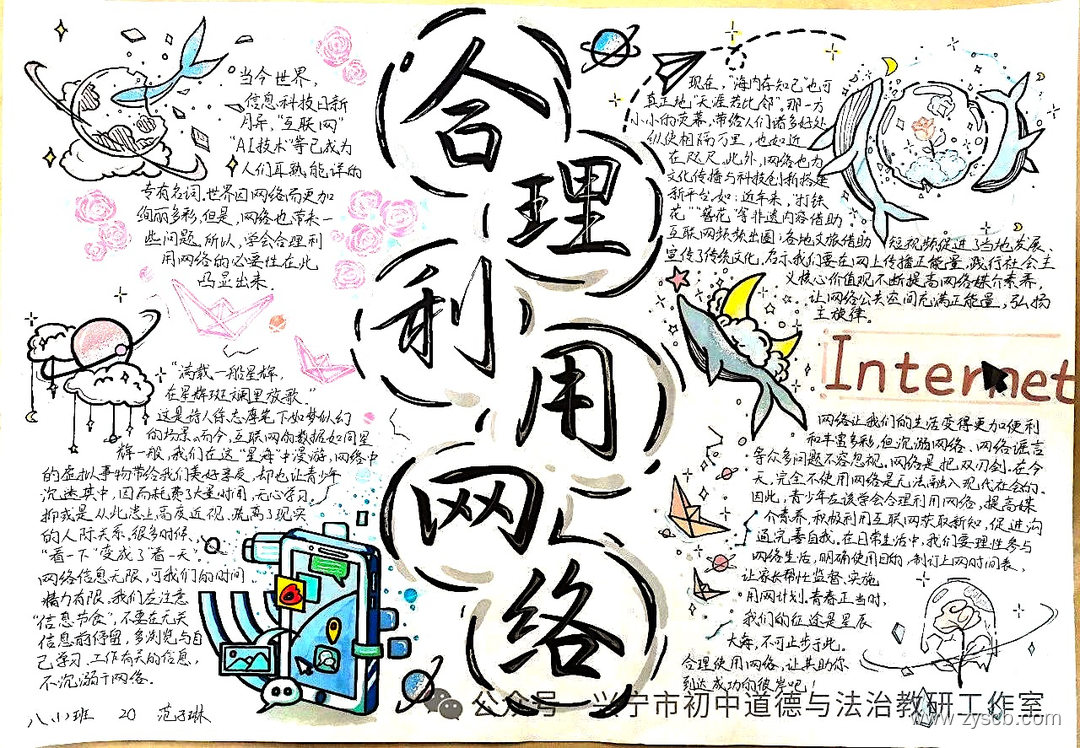 合理利用网络
当今世界,
信息科技日新
月异,"互联网"
"AI技术"等已成为
人们耳熟能详的
专有名词。世界因网络而更加
绚丽多彩,但是,网络也带来一
些问题。所以,学会合理利
用网络的必要性在此
凸显出来。
"满载一船星辉,
在星辉斑斓里放歌。"
这是诗人徐志摩笔下如梦似幻
的场景。而今,互联网的数据如同星
辉一般,我们在这"星海"中漫游,网络中
的虚拟事物带给我们美好享受,却也让青少年
沉迷其中,因而耗费了大量时间,无心学习。
抑或是从此患上高度近视,疏离了现实
的人际关系。很多时候,
"看一下"变成了"看一天"
网络信息无限,可我们的时间、
精力有限。我们应注意
"信息节食",不要在无关
信息前停留,多浏览与自
己学习、工作有关的信息,
不沉溺于网络。
现在,"海内存知己"也可
真正地"天涯若比邻"。那一方
小小的荧幕,带给人们诸多好处
纵使相隔万里,也如近
在咫尺。此外,网络也为
文化传播与科技创新搭建
新平台。如:近年来,"打铁
花""簪花"等非遗内容借助
互联网频频出圈;各地文旅借助短视频促进了当地发展、
宣传了传统文化。启示我们要在网上传播正能量,践行社会主
义核心价值观不断提高网络媒介素养,
让网络公共空间充满正能量,弘扬
主旋律。
Internet
网络让我们的生活变得更加便利
和丰富多彩,但沉溺网络、网络谣言
等众多问题不容忽视。网络是把双刃剑。在今
天,完全不使用网络是无法融入现代社会的。
因此,青少年应该学会合理利用网络,提高媒
介素养,积极利用互联网获取新知、促进沟
通、完善自我。在日常生活中,我们要理性参与
网络生活,明确使用目的,制订上网时间表,
让家长帮忙监督、实施
用网计划。青春正当时,
我们的征途是星辰
大海,不可止步于此。
合理使用网络,让其助你
到达成功的彼岸吧!
八小班 20 范子琳
公众号·兴宁市初中道德与法治教研工作室
www.zyscb.com